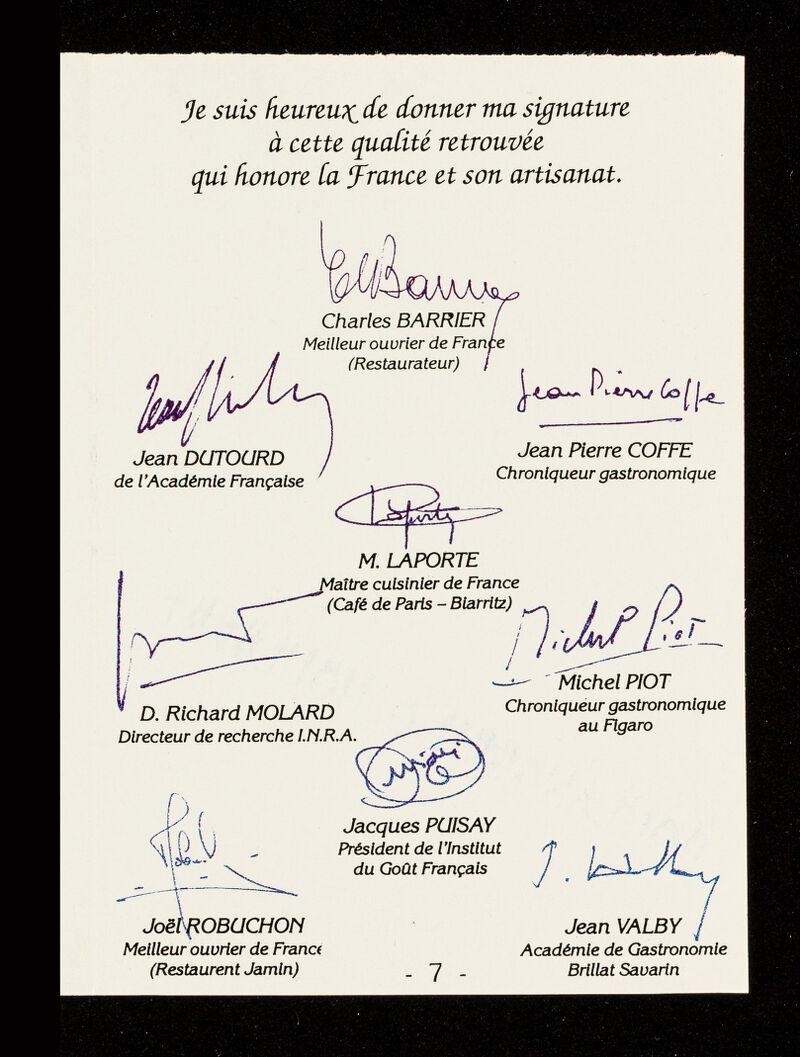 Je suis heureux de donner ma signature
à cette qualité retrouvée
qui honore la France et son artisanat.
Ch Barrier
Charles BARRIER
Meilleur ouvrier de France
(Restaurateur)
Jean Dutourd
Jean DUTOURD
de l'Académie Française
Jean Pierre Coffe
Jean Pierre COFFE
Chroniqueur gastronomique
Laporte
M. LAPORTE
Maître cuisinier de France
(Café de Paris – Biarritz)
D. Richard MOLARD
Directeur de recherche I.N.R.A.
Michel Piot
Michel PIOT
Chroniqueur gastronomique
au Figaro
Jacques PUISAY
Président de l'Institut
du Goût Français
Joël ROBUCHON
Meilleur ouvrier de France
(Restaurent Jamin)
J. Valby
Jean VALBY
Académie de Gastronomie
Brillat Savarin
- 7 -